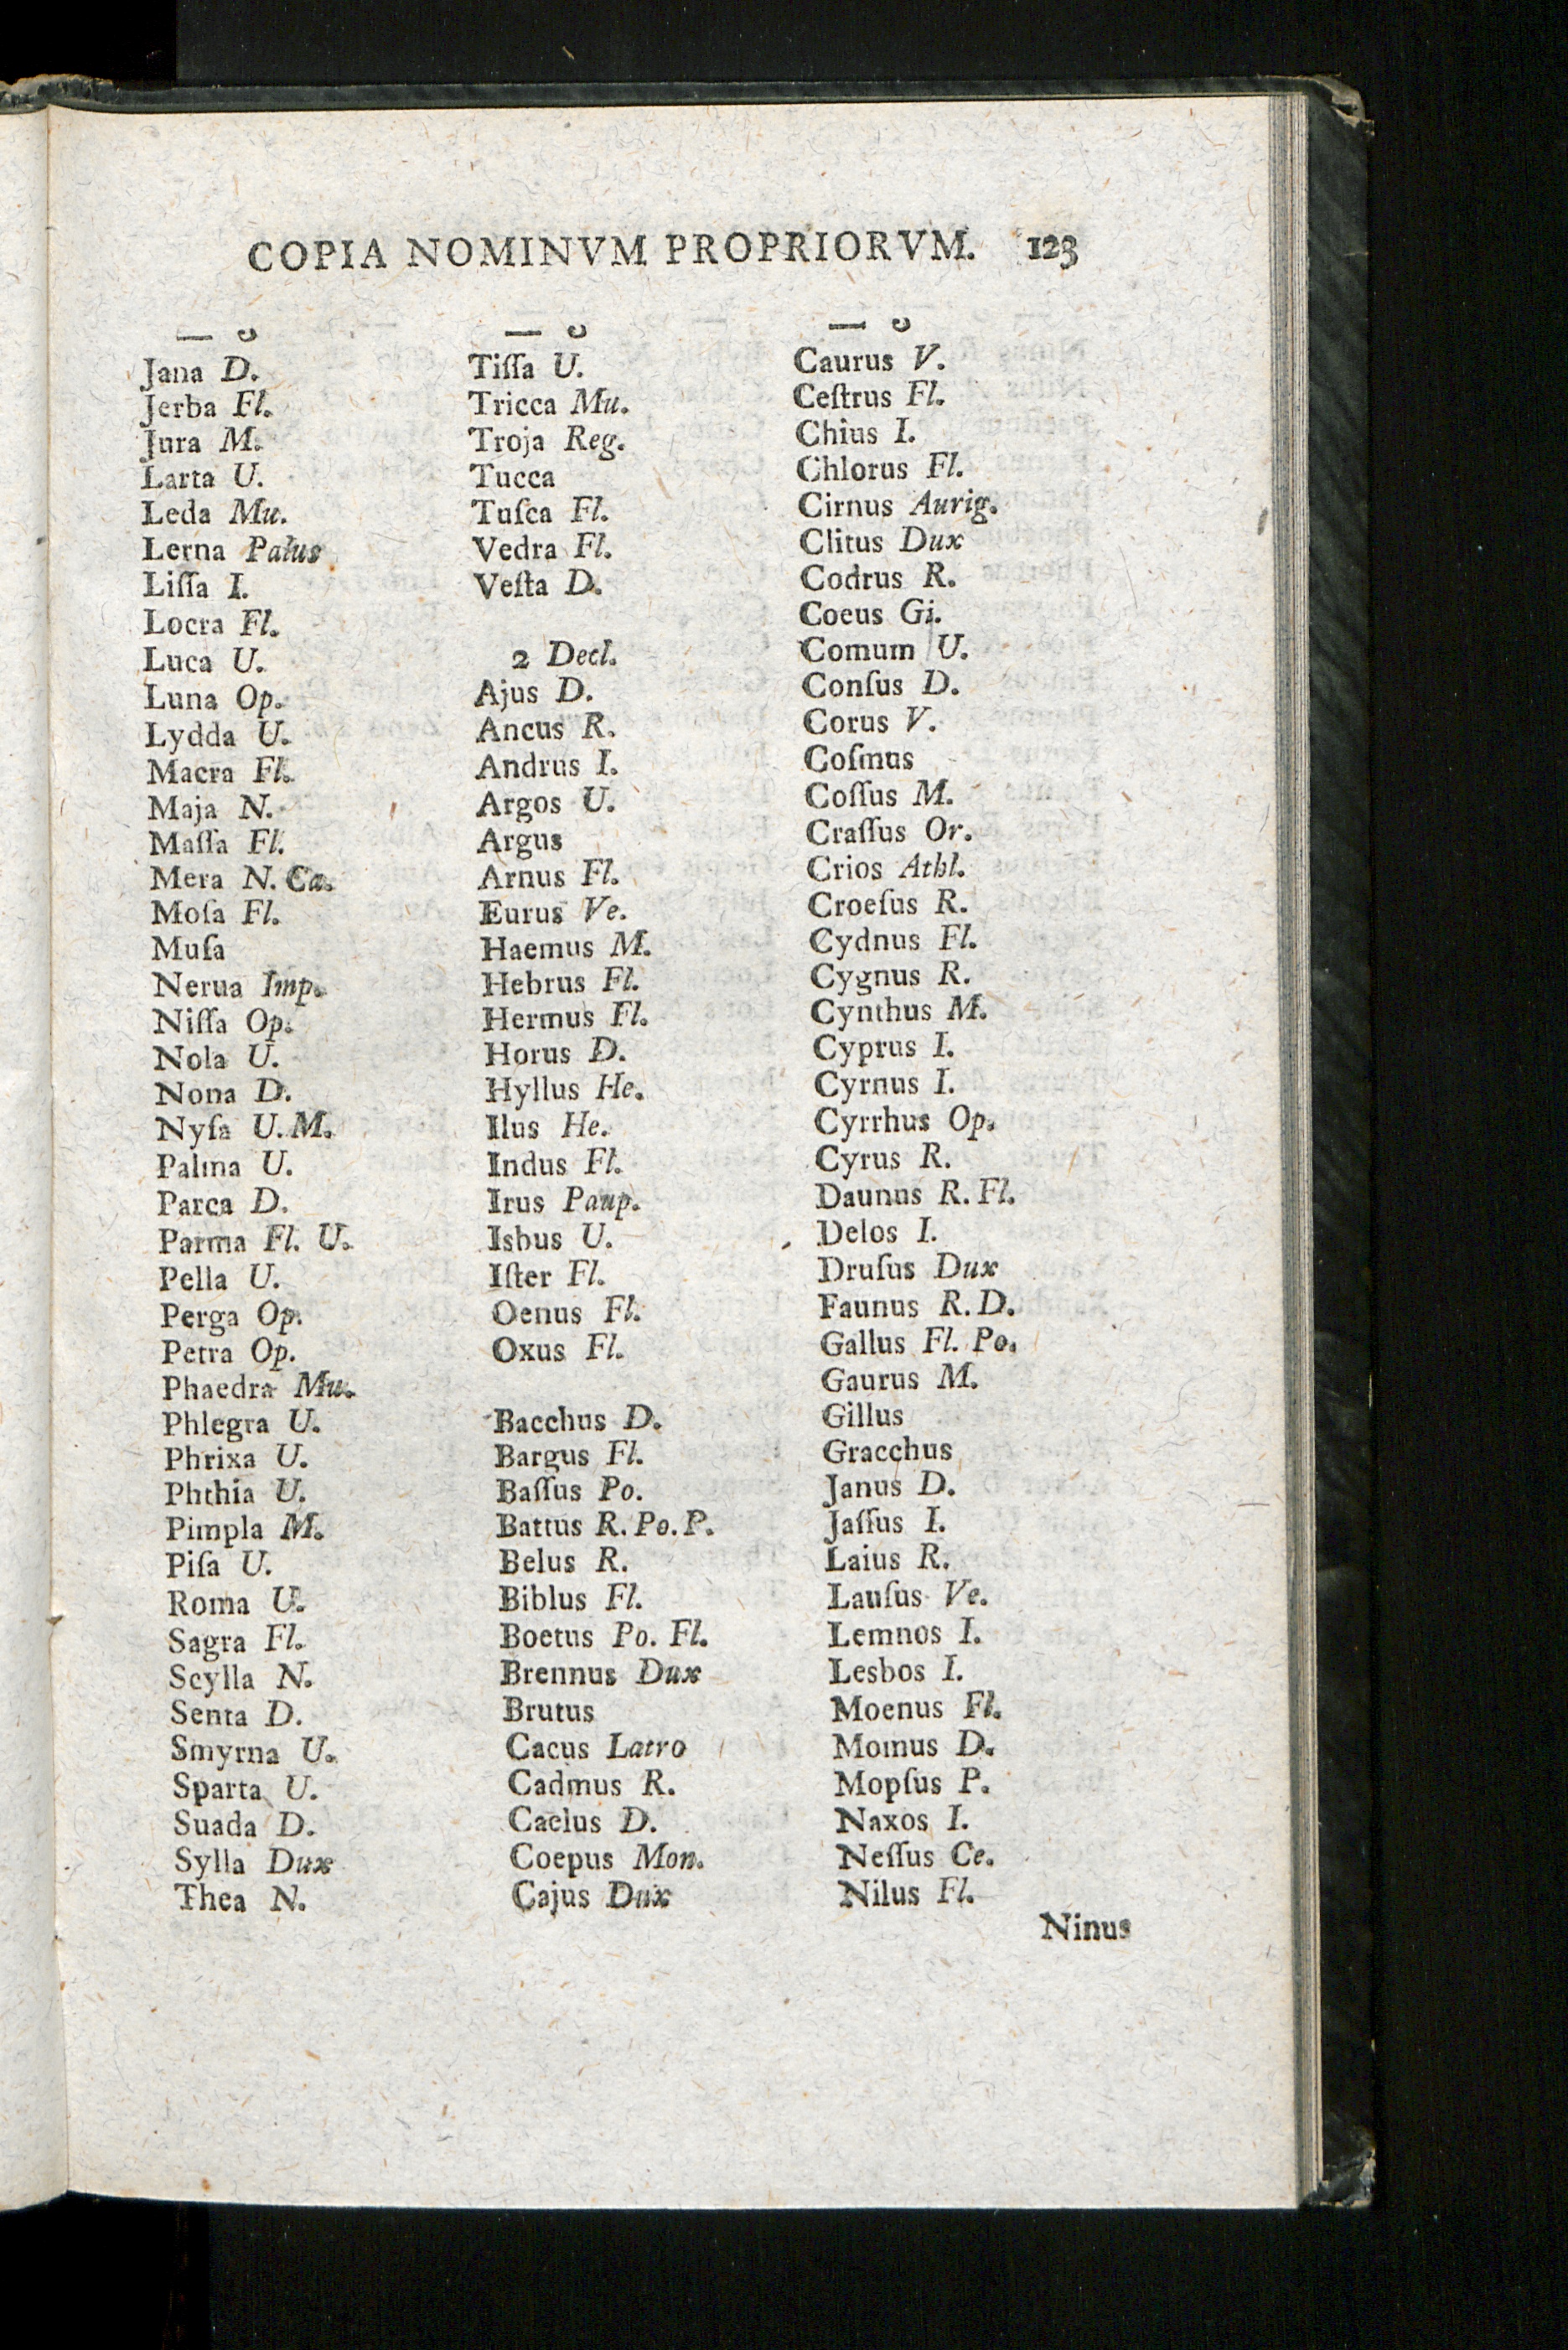 COPIA NOMINVM PROPRIORVM. 123
— ᴗ
Jana D.
Jerba Fl.
Jura M.
Larta U.
Leda Mu.
Lerna Palus
Liſſa I.
Locra Fl.
Luca U.
Luna Op.
Lydda U.
Macra Fl.
Maja N.
Maſſa Fl.
Mera N. Ca.
Moſa Fl.
Muſa
Nerua Imp.
Niſſa Op.
Nola U.
Nona D.
Nyſa U. M.
Palma U.
Parca D.
Parma Fl. U.
Pella U.
Perga Op.
Petra Op.
Phaedra Mu.
Phlegra U.
Phrixa U.
Phthia U.
Pimpla M.
Piſa U.
Roma U.
Sagra Fl.
Scylla N.
Senta D.
Smyrna U.
Sparta U.
Suada D.
Sylla Dux
Thea N.
— ᴗ
Tiſſa U.
Tricca Mu.
Troja Reg.
Tucca
Tuſca Fl.
Vedra Fl.
Veſta D.
2 Decl.
Ajus D.
Ancus R.
Andrus I.
Argos U.
Argus
Arnus Fl.
Eurus Ve.
Haemus M.
Hebrus Fl.
Hermus Fl.
Horus D.
Hyllus He.
Ilus He.
Indus Fl.
Irus Paup.
Isbus U.
Iſter Fl.
Oenus Fl.
Oxus Fl.
Bacchus D.
Bargus Fl.
Baſſus Po.
Battus R. Po. P.
Belus R.
Biblus Fl.
Boetus Po. Fl.
Brennus Dux
Brutus
Cacus Latro
Cadmus R.
Caelus D.
Coepus Mon.
Cajus Dux
— ᴗ
Caurus V.
Ceſtrus Fl.
Chius I.
Chlorus Fl.
Cirnus Aurig.
Clitus Dux
Codrus R.
Coeus Gi.
Comum U.
Conſus D.
Corus V.
Coſmus
Coſſus M.
Craſſus Or.
Crios Athl.
Croeſus R.
Cydnus Fl.
Cygnus R.
Cynthus M.
Cyprus I.
Cyrnus I.
Cyrrhus Op.
Cyrus R.
Daunus R. Fl.
Delos I.
Druſus Dux
Faunus R. D.
Gallus Fl. Po.
Gaurus M.
Gillus
Gracchus
Janus D.
Jaſſus I.
Laius R.
Lauſus Ve.
Lemnos I.
Lesbos I.
Moenus Fl.
Momus D.
Mopſus P.
Naxos I.
Neſſus Ce.
Nilus Fl.
Ninus